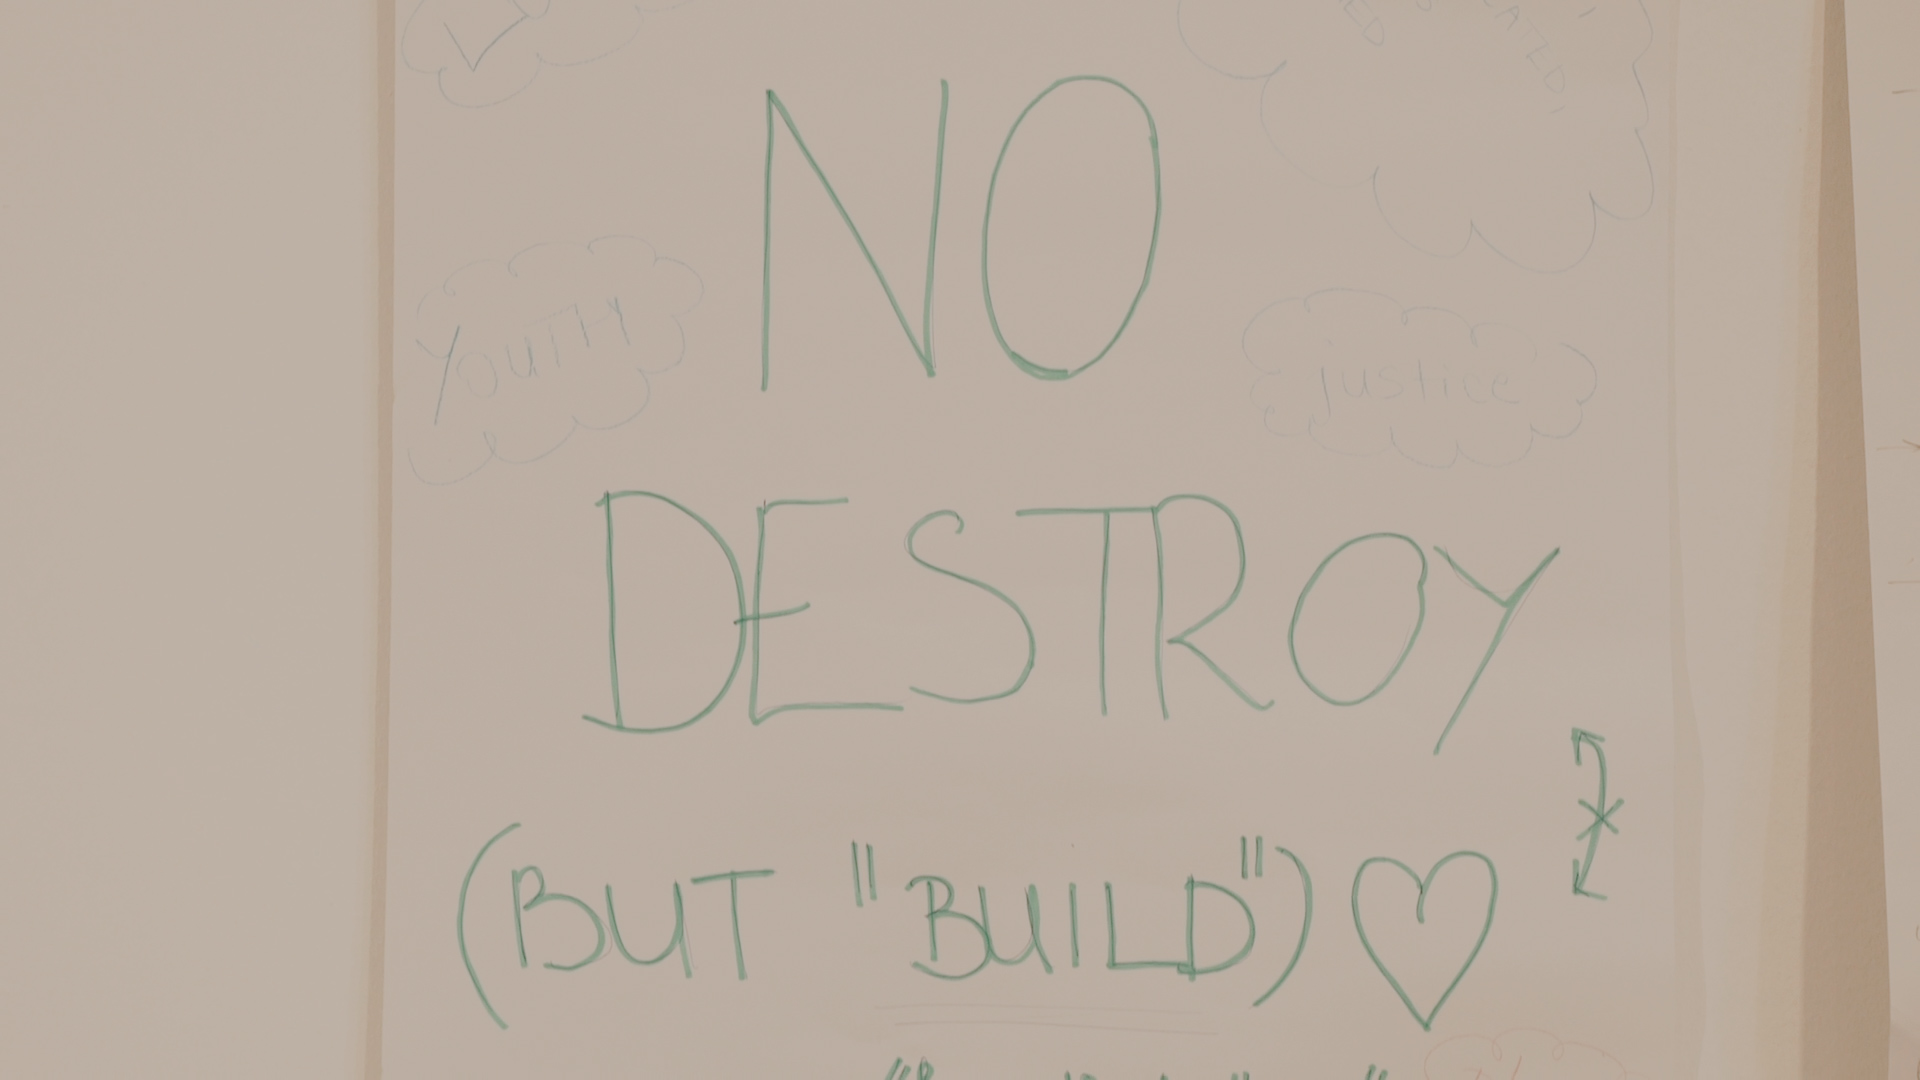 NO
YOUTH
justice
DESTROY
(BUT "BUILD") ♡